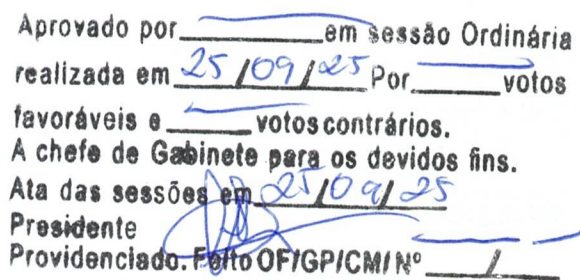 Aprovado por ______ em sessão Ordinária
realizada em 25/09/25 Por ______ votos
favoráveis e ______ votos contrários.
A chefe de Gabinete para os devidos fins.
Ata das sessões em 25/09/25
Presidente
Providenciado. Feito OF/GP/CM/ Nº ______/____